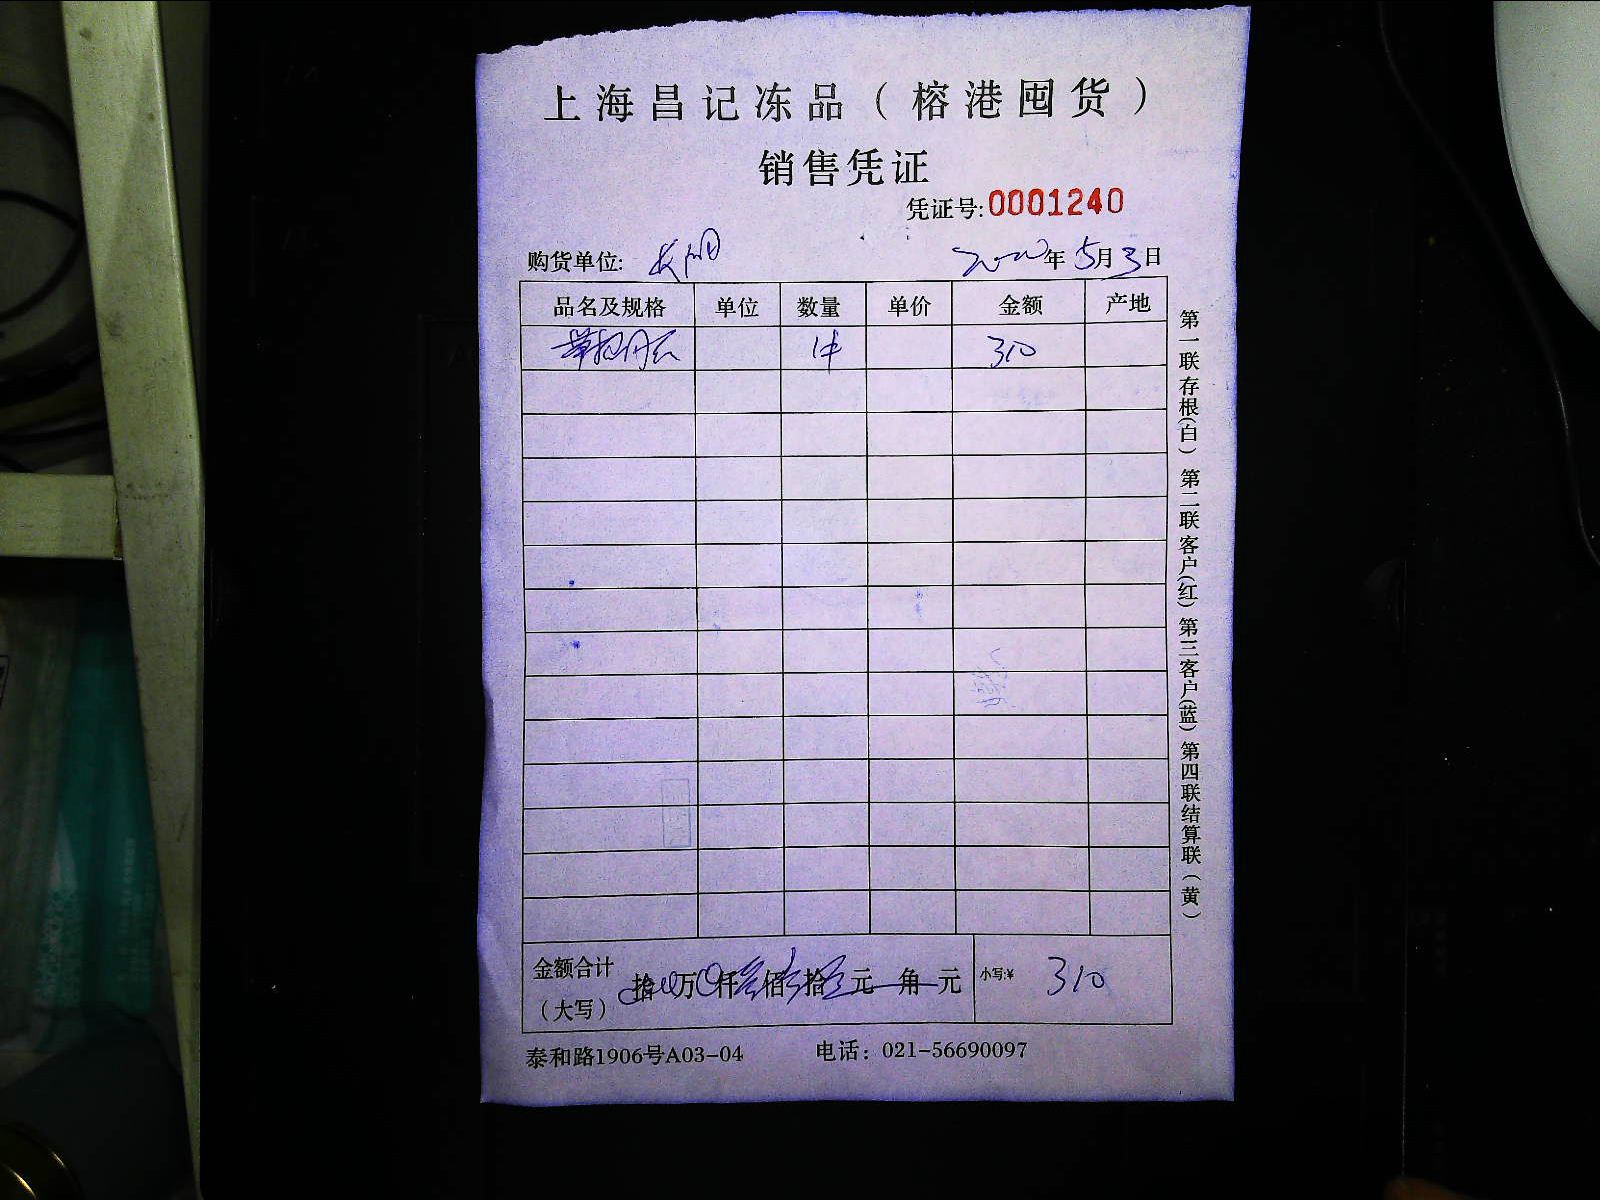 上海昌记冻品（榕港囤货）
销售凭证
凭证号:0001240
购货单位: 长阳 2020年5月3日
品名及规格 单位 数量 单价 金额 产地
1件 310
金额合计（大写） 拾 万 仟 佰 拾 元 角 元 小写:¥ 310
泰和路1906号A03-04 电话：021-56690097
第一联存根(白) 第二联客户(红) 第三客户(蓝) 第四联结算联(黄)